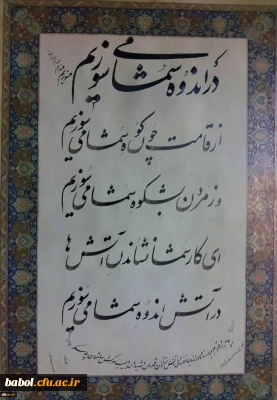 در اندوه شما می سوزیم
از قامت چون کوه شما می سوزیم
وز مردن بشکوه شما می سوزیم
ای کار شما نشاندن آتش ها
در آتش اندوه شما می سوزیم
babol.cfu.ac.ir